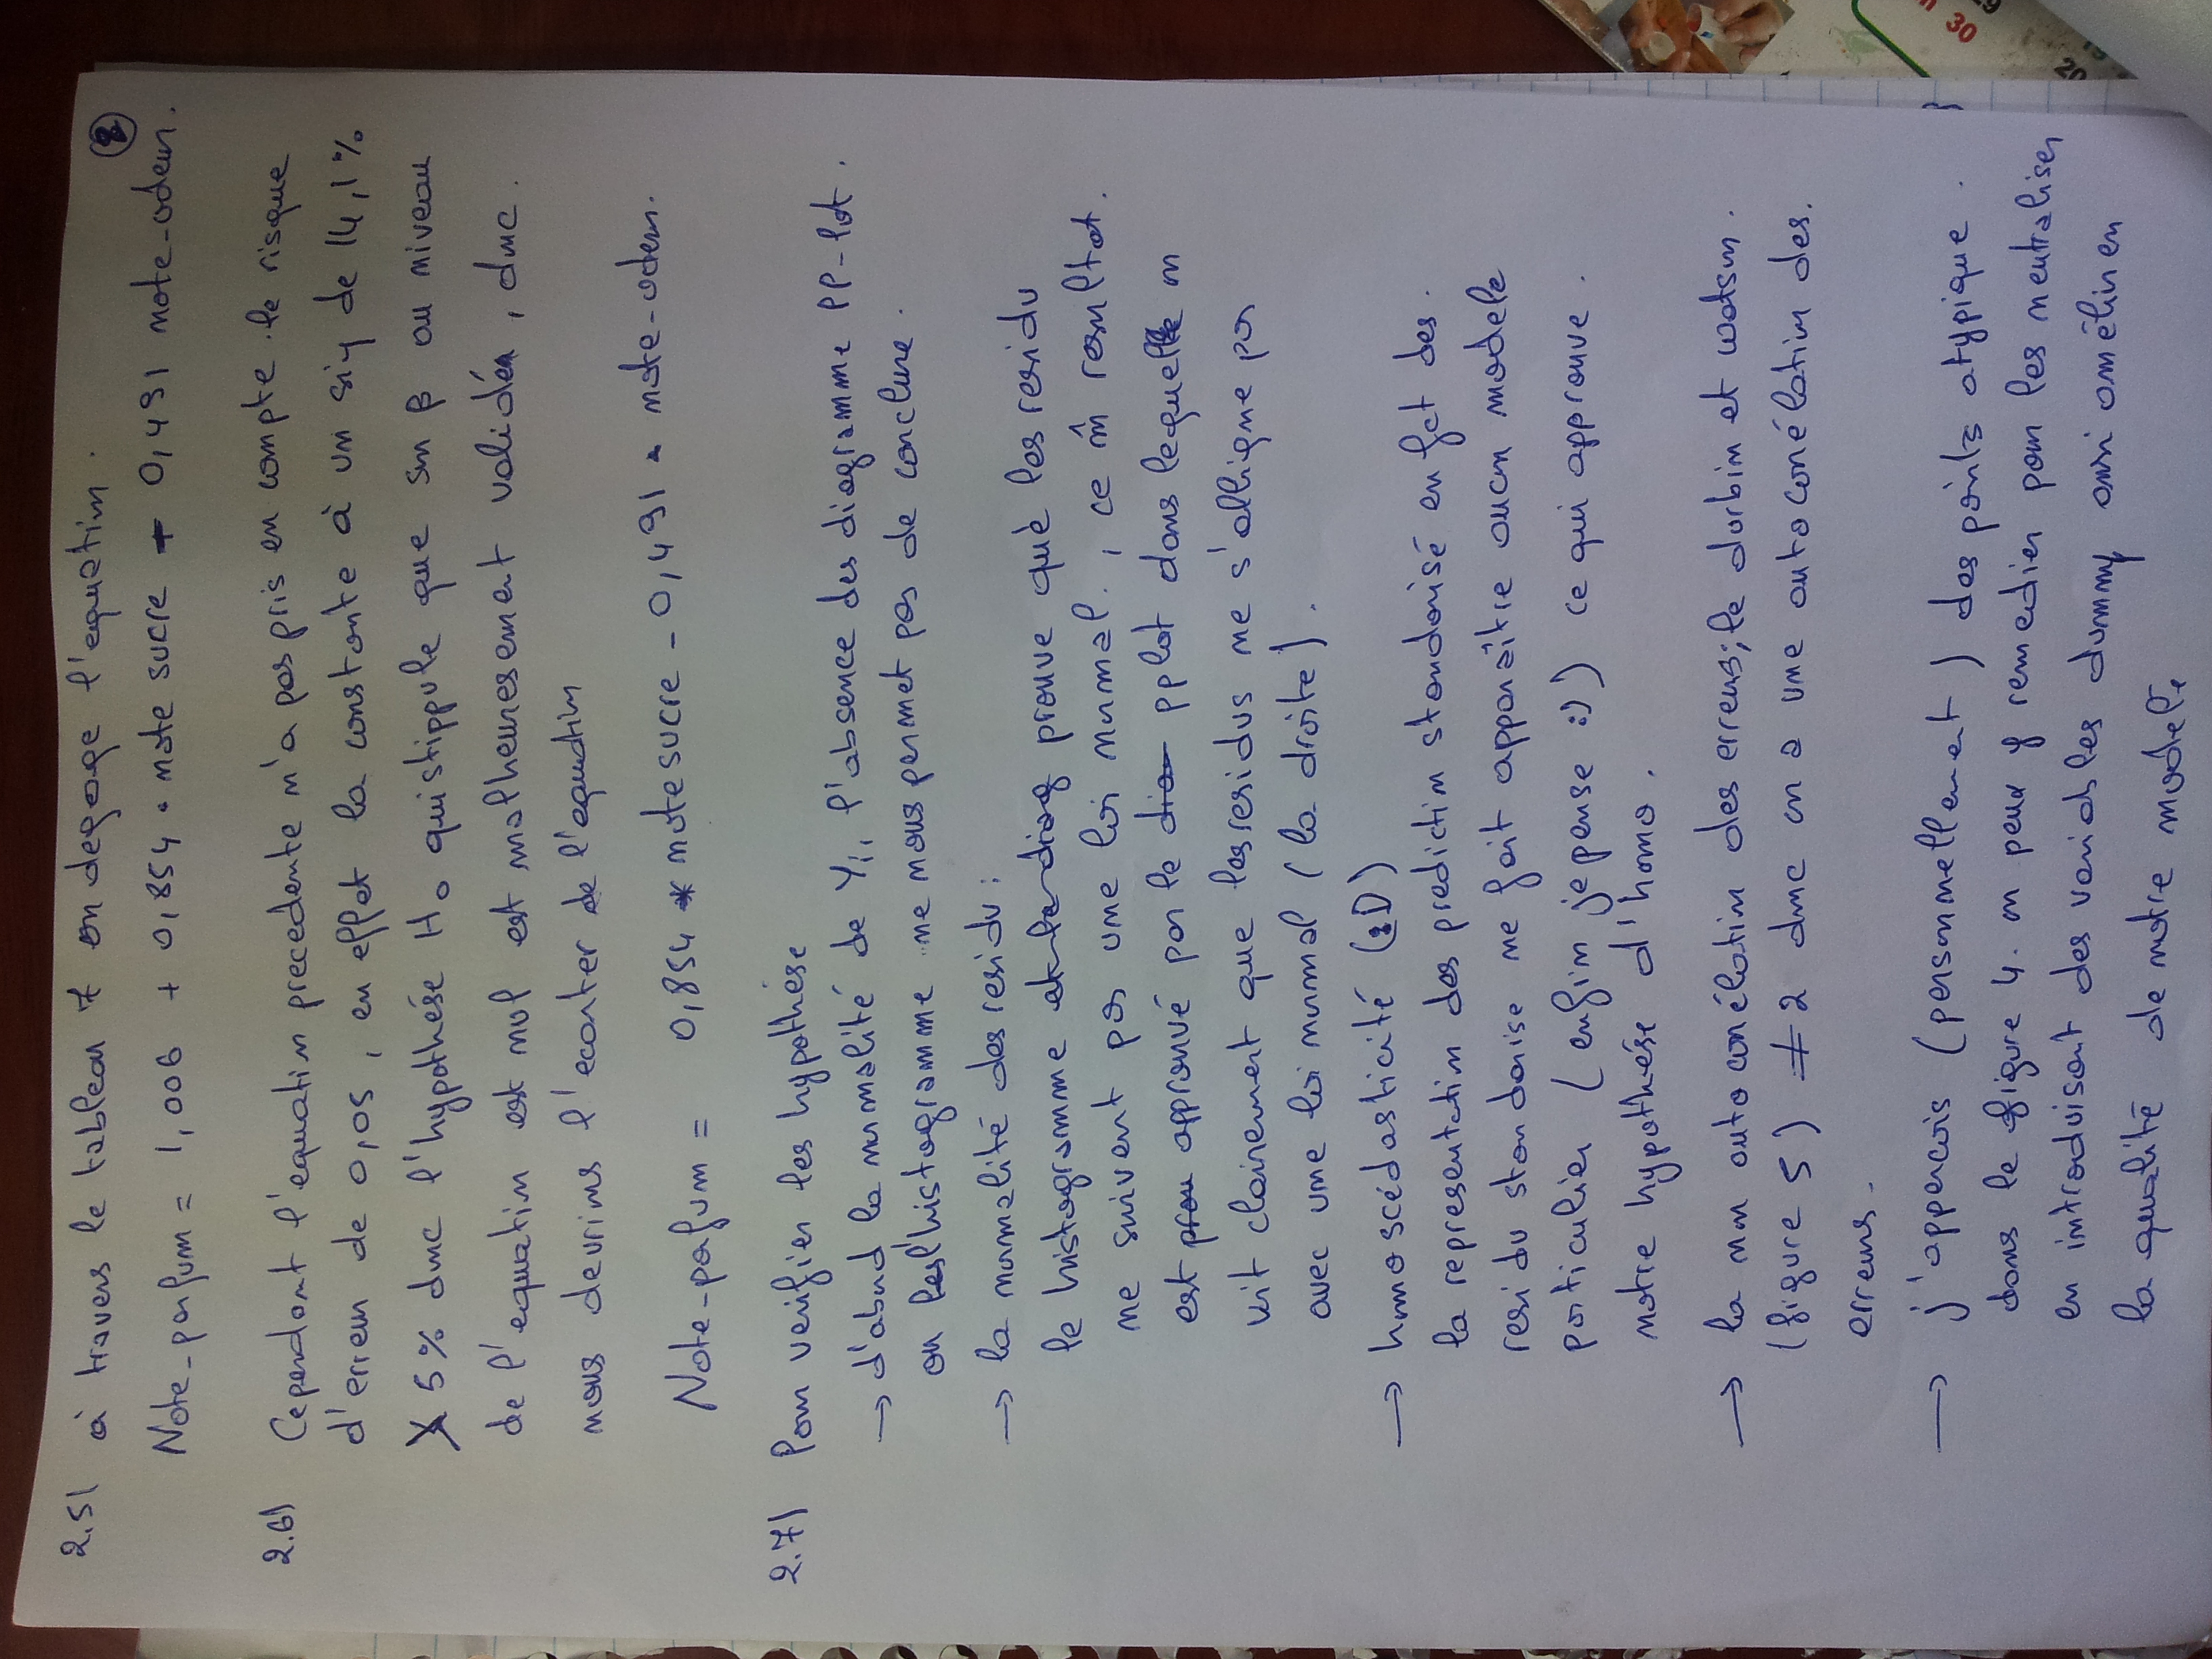 ②
2.5) à travers le tableau 7 on degage l'equation.
Note-parfum = 1,006 + 0,854 * note sucre + 0,491 note-odeur.
2.6) Cependant l'equation precedente n'a pas pris en compte le risque
d'erreur de 0,05, en effet la constante à un sig de 14,1%
> 5% donc l'hypothése H0 qui stippule que son β au niveau
de l'equation est nul est malheuresement validée, donc
nous devrions l'ecarter de l'equation
Note-pafum = 0,854 * note sucre - 0,491 * note-odeur.
2.7) Pour verifier les hypothése
→ d'abord la normalité de Yi, l'absence des diagramme PP-plot.
ou l'histogramme ne nous permet pas de conclure.
→ la normalité des residu:
le histogramme prouve què les residu
ne suivent pas une loi normal, ce m̂ resultat.
est approuvé par le pplot dans lequelle on
voit clairement que les residus ne s'alligne pas
avec une loi normal (la droite).
→ homoscédasticité (2D)
la representation des prediction standarisé en fct des
residu standarise ne fait apparaître aucun modele
particulier (enfin je pense :) ) ce qui approuve
notre hypothése d'homo.
→ la non autocorrélation des erreurs; le durbin et watson.
(figure 5) ≠ 2 donc on a une autocorrélation des
erreurs.
→ j'apperçois (personnellement) des points atypique
dans le figure 4. on peux y remedier pour les neutraliser
en introduisant des variables dummy ainsi améliorer
la qualité de notre modele
30
29
19
20